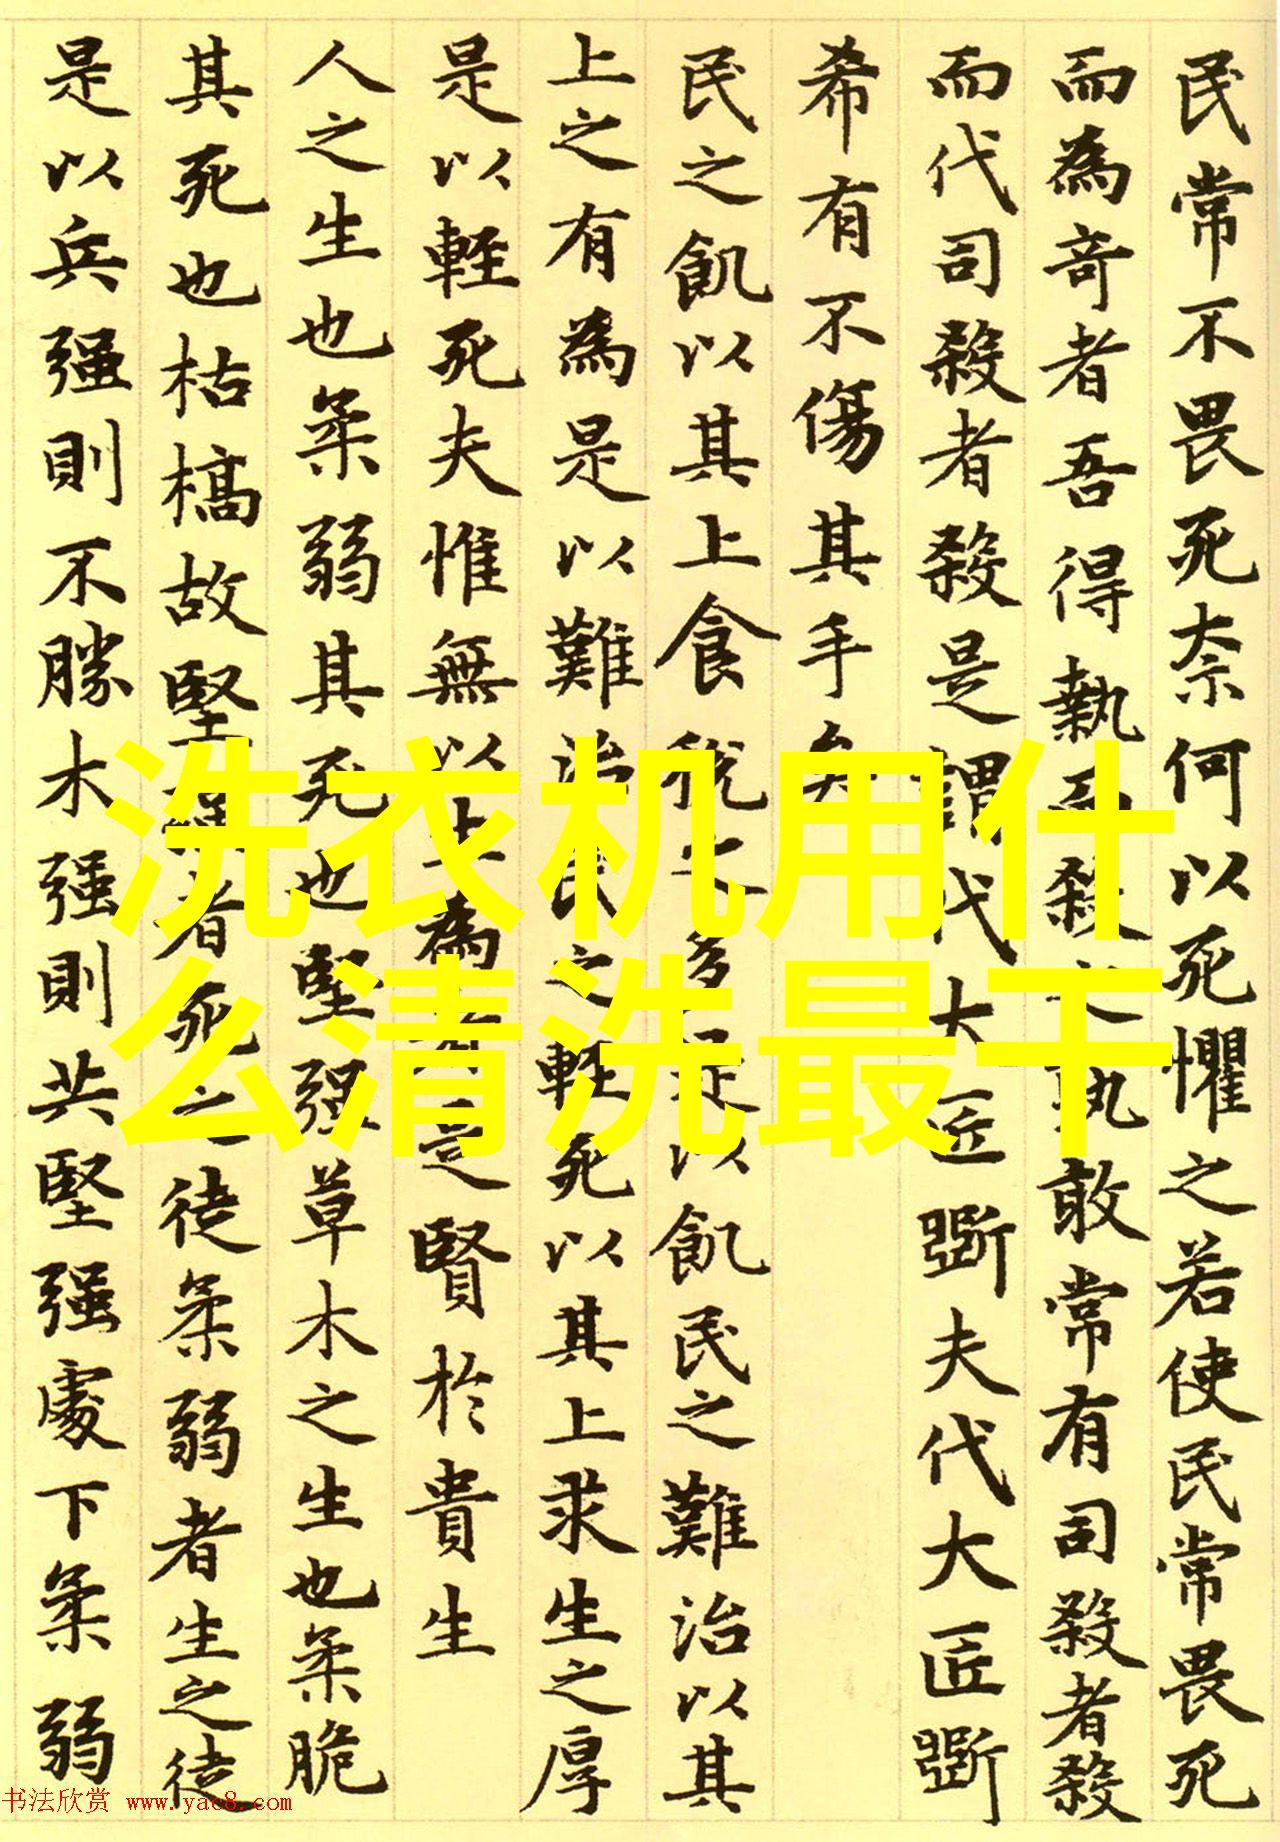 民常不畏死奈何以死懼之若使民常畏死
而為奇者吾得執而殺之孰敢常有司殺者殺
而代司殺者殺是謂代大匠斲夫代大匠斲
希有不傷其手矣
民之飢以其上食稅之多是以飢民之難治以其
上之有為是以難治民之輕死以其上求生之厚
是以輕死夫惟無以生為者是賢於貴生
人之生也柔弱其死也堅强草木之生也柔脆
其死也枯槁故堅强者死之徒柔弱者生之徒
是以兵强則不勝木强則共堅强處下柔弱
洗衣机用什
么清洗最干
书法欣赏 www.yac8.com